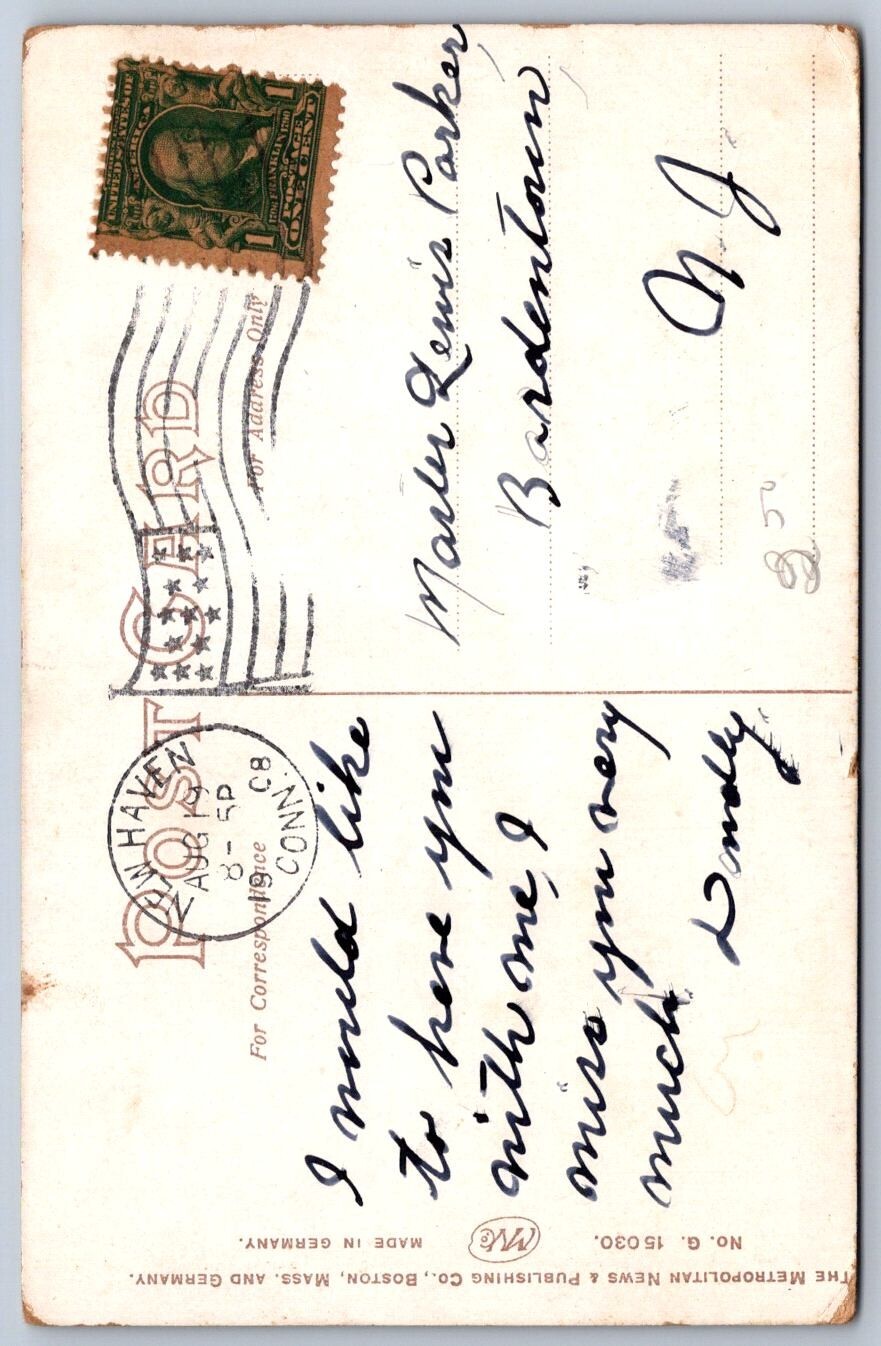 POST CARD
For Correspondence
For Address Only
NEW HAVEN
AUG 19
8-5P
1908
CONN.
UNITED STATES OF
AMERICA
1706 FRANKLIN 1790
POSTAGE
1 ONE CENT 1
I would like
to have you
with me, I
miss you very
much
Master Lewis Parker,
Bordentown
N J
250
THE METROPOLITAN NEWS & PUBLISHING CO., BOSTON, MASS. AND GERMANY.
No. G. 15030.
MADE IN GERMANY.